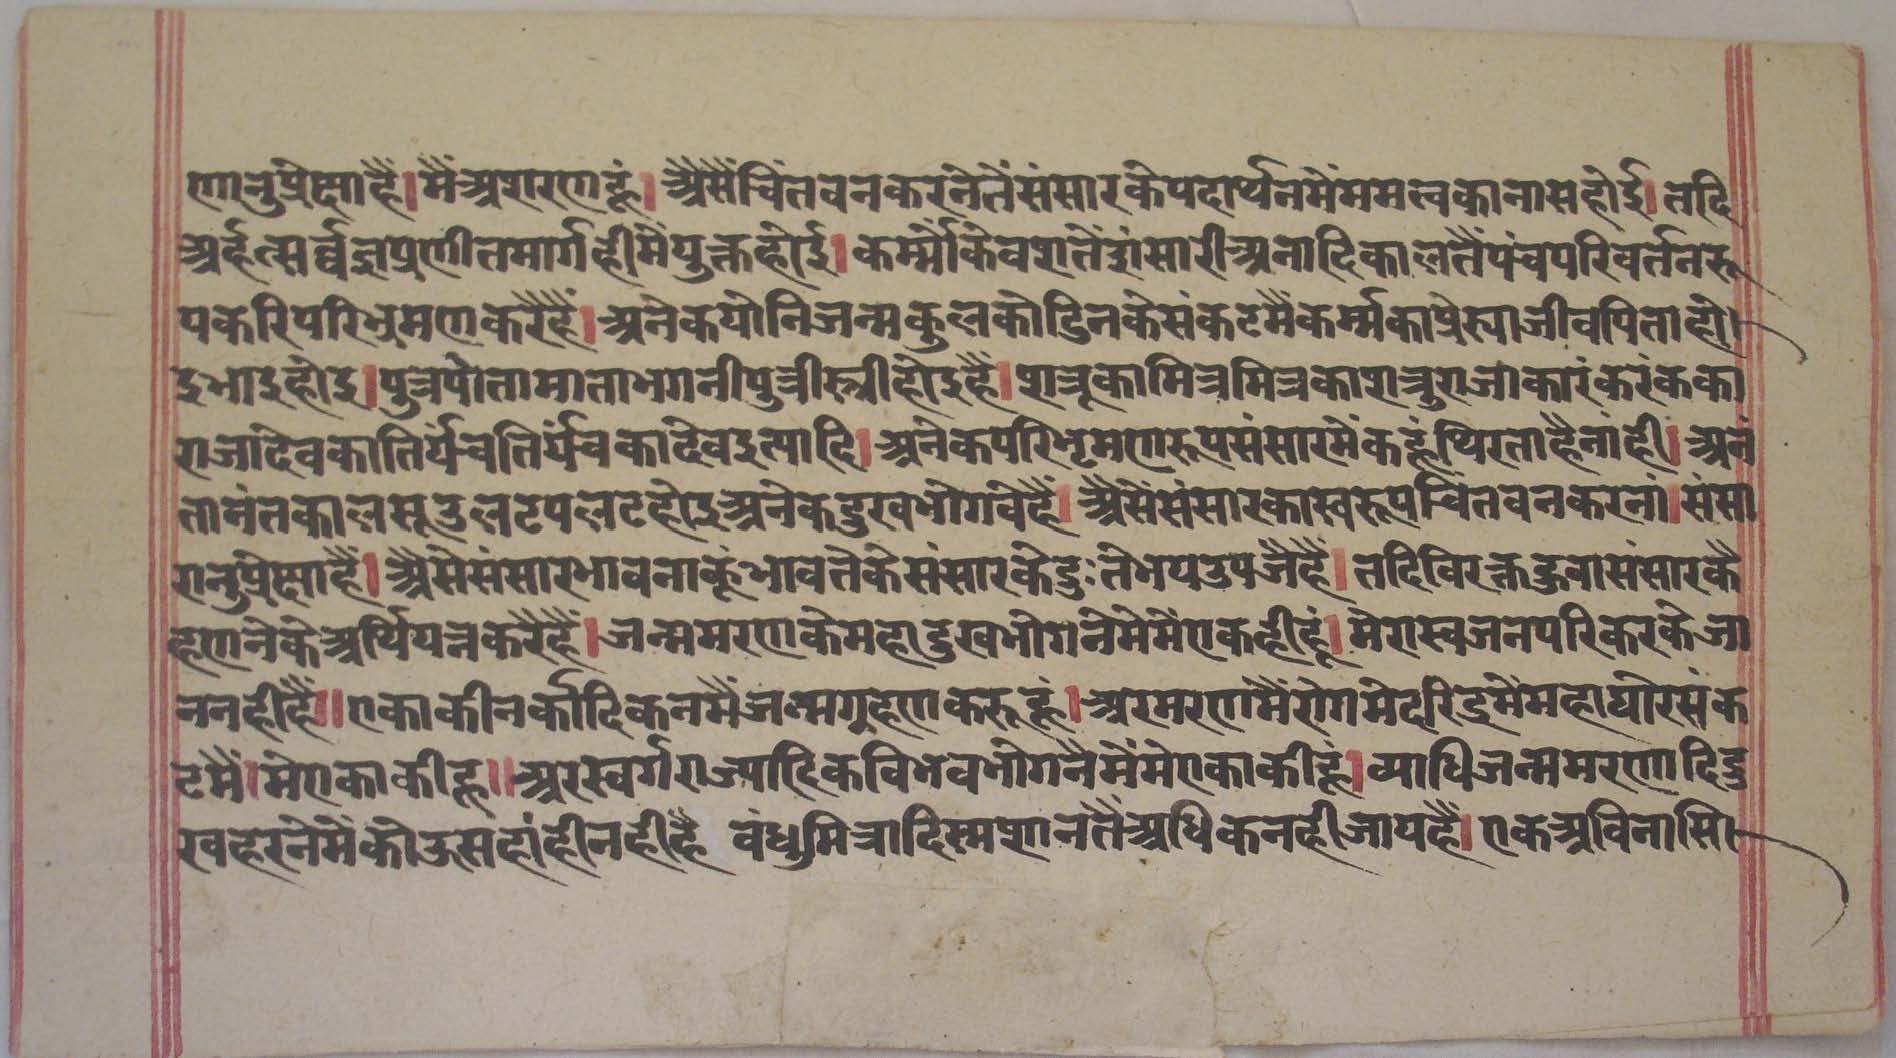 णानुप्रेक्षाहैं।मैंअशरणहूं।अैसैंचिंतवनकरनेतैंसंसारकेपदार्थनमैंममत्वकानासहोई।तदि
अर्हत्सर्व्वज्ञप्रणीतमार्गहीमैयुक्तहोई।कर्म्मौकेवशतेंसंसारीअनादिकालतैंपंचपरिवर्तनरू
पकरिपरिभ्रमणकरैहैं।अनेकयोनिजन्मकुलकोटिनकेसंकटमैंकर्म्मकाप्रेरयाजीवपिताहो
इभाइहोइ।पुत्रपोतामाताभगनीपुत्रीस्त्रीहोइहैं।शत्रूकामित्रमित्रकाशत्रुराजाकारंकरंकका
राजादेवकातिर्यंचतिर्यंचकादेवइत्यादि।अनेकपरिभ्रमणरूपसंसारमेंकहूंथिरताहैनांही।अनं
तानंतकालसूउलटपलटहोइअनेकदुखभोगवेहैं।अैसेंसंसारकास्वरूपचिंतवनकरनां।संसा
रानुप्रेक्षाहैं।अैसेसंसारभावनाकूंभावतेकेसंसारकेदुःतेभयउपजैहैं।तदिविरक्तहुवासंसारकै
हणनेकेअर्थियत्नकरैहैं।जन्ममरणकेमहादुखभोगनेमेमैंएकहीहूं।मेरास्वजनपरिकरकेजा
ननहीहैं॥एकाकीनर्कादिकनमैंजन्मग्रहणकरूहूं।अरमरणमैंरोगमेदारिद्रमेंमहाघोरसंक
टमैं।मेएकाकीहू॥अरस्वर्गराज्यादिकविभवभोगनैमेंमेएकाकीहूं।व्याधिजन्ममरणादिदु
खहरनेमेंकोऊसहांहीनहीहै वंधुमित्रादिस्मशानतैंअधिकनहीजायहैं।एकअविनासि